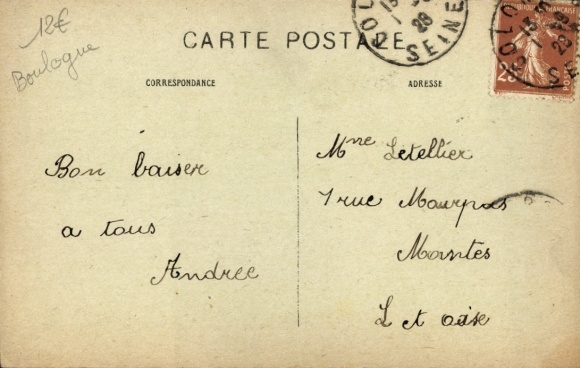 12€
Boulogne
CARTE POSTALE
CORRESPONDANCE
ADRESSE
Bon baiser
a tous
Andree
Mme Letellier
7 rue Maurpas
Mantes
L et oise
SEINE
28
SE